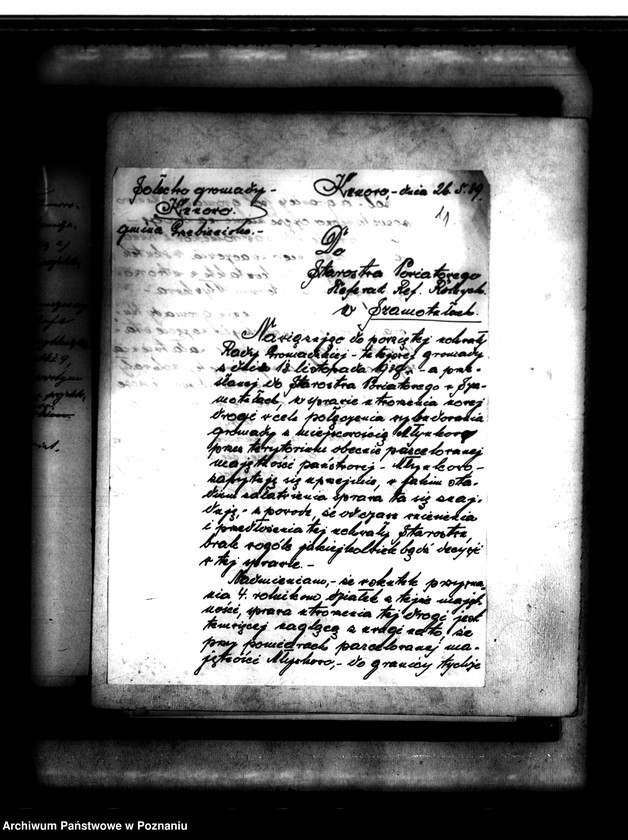 Sołectwo gromady -
Knorowo.
gmina
dnia 26.5.39.
11
Do
Starostwa Powiatowego
Referat Ref. Rolnych
w Szamotułach.
Nawiązując do powziętej uchwały
Rady Gromadzkiej - tutejszej gromady
z dnia 18 listopada a prze-
słanej do Starostwa Powiatowego w Sza-
motułach, w sprawie utworzenia nowej
drogi w celu połączenia wybudowania
gromady z miejscowością Młynkowo
przez terytorium obecnie parcelowanej
majętności państwowej - Młynkowo -
zapytuje się uprzejmie, w jakim sta-
dium załatwienia sprawa ta się znaj-
duje, - z powodu, że od czasu
i przedłożenia tej uchwały Starostwu,
brak wogóle jakiejkolwiek bądź decyzji
w tej sprawie. -
Nadmieniamy, - że wskutek przyzna-
nia 4. rolnikom działek z tejże majęt-
ności, sprawa utworzenia tej drogi jest
temwięcej naglącą z uwagi na to, że
przy pomiarach parcelowanej ma-
jętności - do granicy tychże